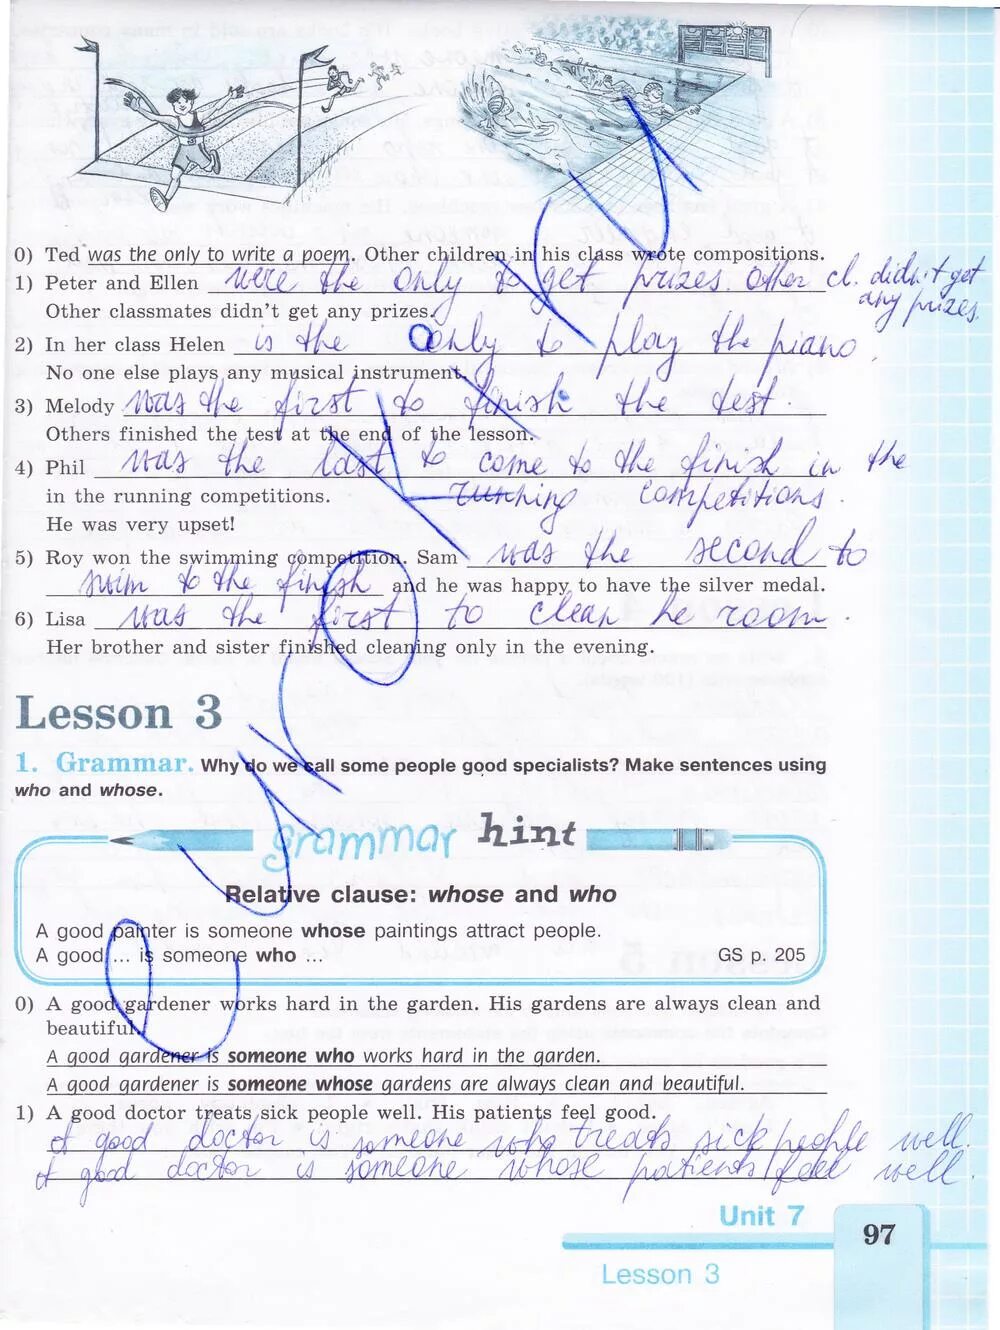 0) Ted was the only to write a poem. Other children in his class wrote compositions.
1) Peter and Ellen were the only to get prizes. Other cl. didn't get
any prizes.
Other classmates didn't get any prizes.
2) In her class Helen is the only to play the piano.
No one else plays any musical instrument.
3) Melody was the first to finish the test.
Others finished the test at the end of the lesson.
4) Phil was the last to come to the finish in the
in the running competitions. running competitions.
He was very upset!
5) Roy won the swimming competition. Sam was the second to
swim to the finish and he was happy to have the silver medal.
6) Lisa was the first to clean he room.
Her brother and sister finished cleaning only in the evening.
Lesson 3
1. Grammar. Why do we call some people good specialists? Make sentences using
who and whose.
grammar hint
Relative clause: whose and who
A good painter is someone whose paintings attract people.
A good ... is someone who ...
GS p. 205
0) A good gardener works hard in the garden. His gardens are always clean and
beautiful.
A good gardener is someone who works hard in the garden.
A good gardener is someone whose gardens are always clean and beautiful.
1) A good doctor treats sick people well. His patients feel good.
A good doctor is someone who treats sick people well.
A good doctor is someone whose patients feel well.
Unit 7
97
Lesson 3